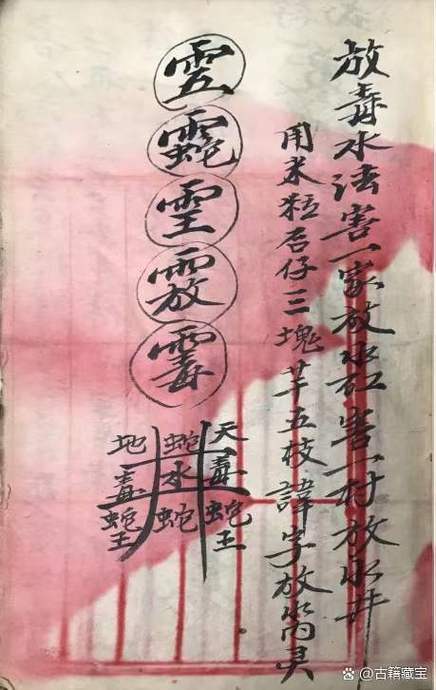 放毒水法害一家放水缸害一村放水井
用米粒石仔三塊芉五枝諱字放水灵
天毒蛇王
蛇水蛇
地毒蛇王
@古籍藏宝